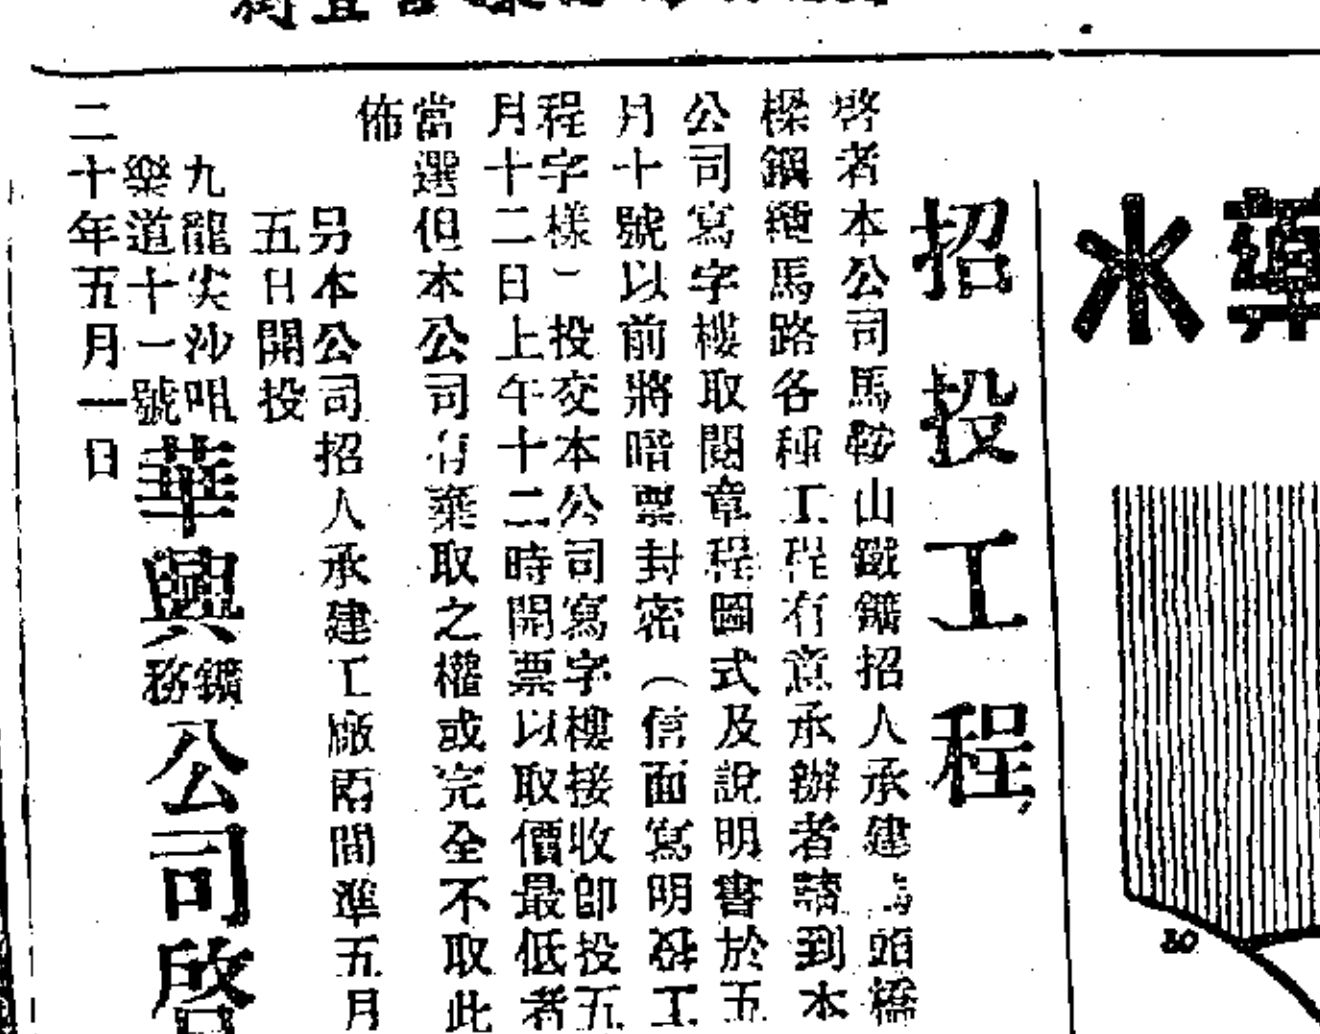 招投工程
啓者本公司馬鞍山鐵鑛招人承建馬頭橋
樑鋼纜馬路各種工程有意承辦者請到本
公司寫字樓取閱章程圖式及說明書於五
月十號以前將暗票封密（信面寫明投工
程字樣）投交本公司寫字樓接收卽投五
月十二日上午十二時開票以取價最低者
當選但本公司有棄取之權或完全不取此
佈
另本公司招人承建工廠兩間準五月
五日開投
九龍尖沙咀
樂道十一號
華興鑛務公司啟
二十年五月一日